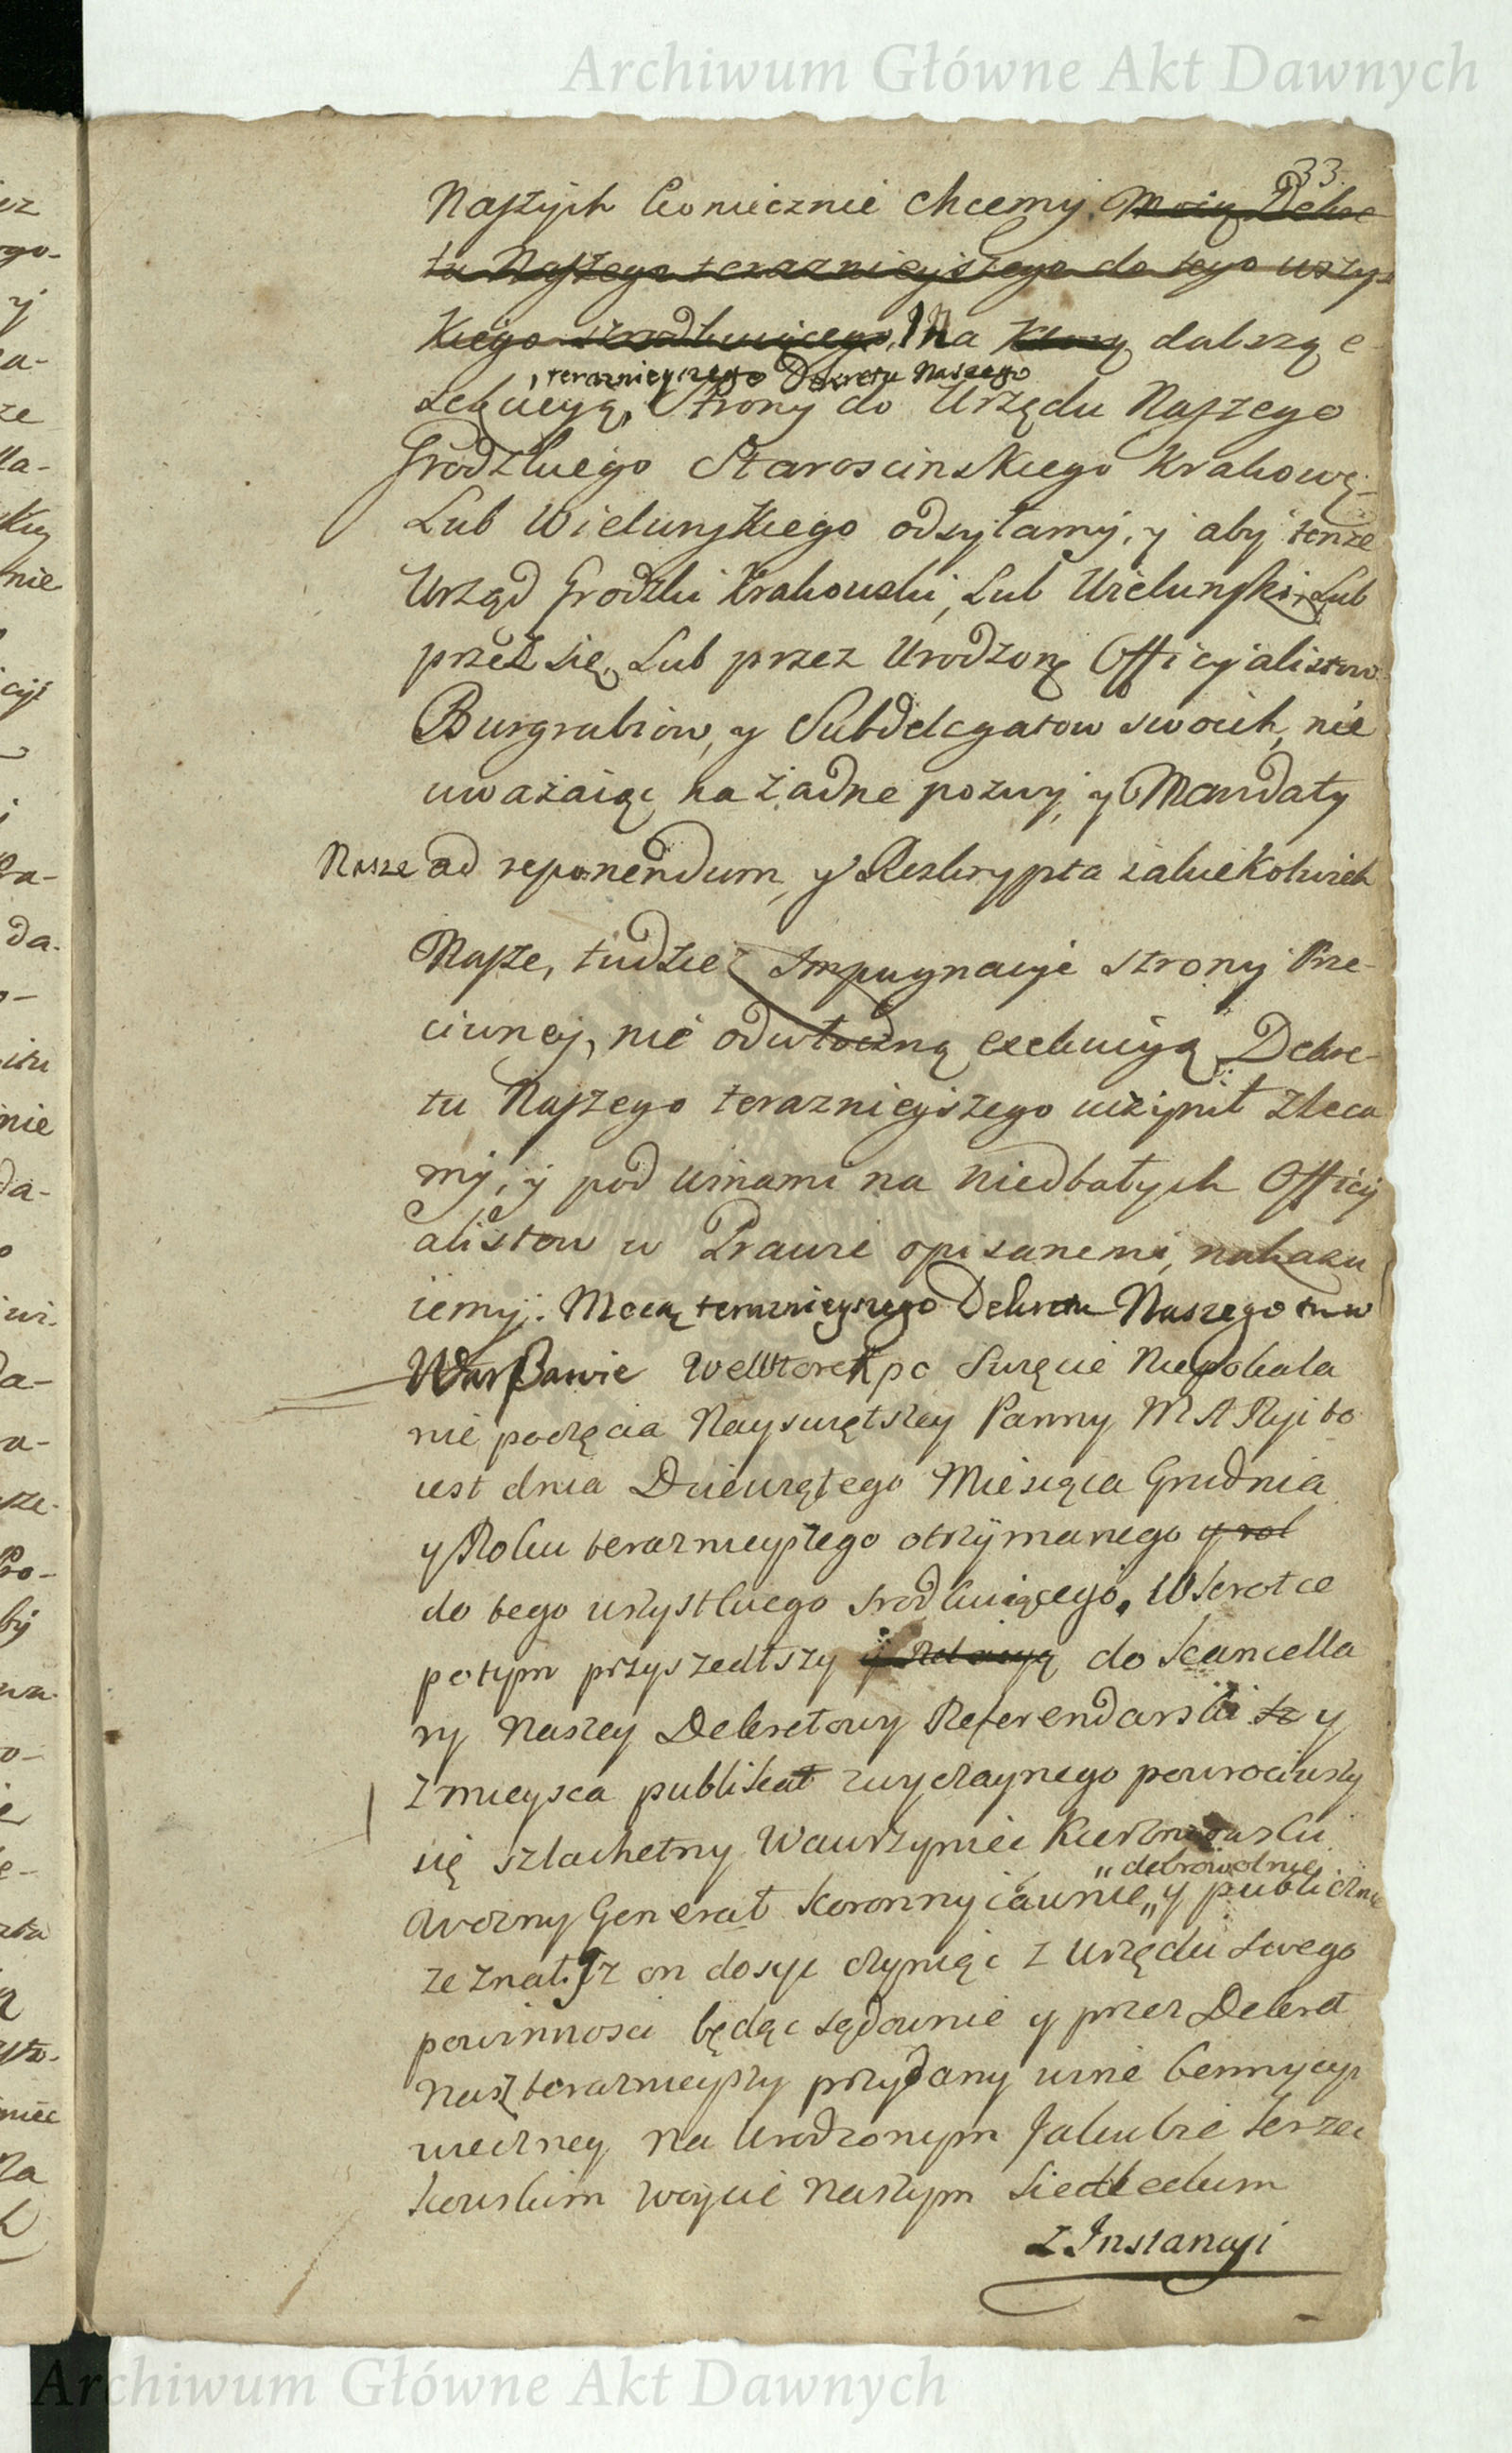 Archiwum Główne Akt Dawnych
33.
Naszych koniecznie chcemy. Mocą Dekre-
tu Naszego terazniejszego do tego wszys-
kiego srzodkuiącego, Na dalszą e-
, terazniejszego Dekretu Naszego
xekucyą, Strony do Urzędu Naszego
Grodzkiego Staroscinskiego Krakows-
Lub Wielunskiego odsyłamy, y aby tenze
Urząd Grodzki Krakowski, Lub Wielunski, Lub
przez się, Lub przez Urodzone Officyalistow
Burgrabiow, y Subdelegatow swoich, nie
uwazaiąc na zadne pozwy, y Mandaty
Nasze ad reponendum, y Reskrypta iakiekolwiek
Nasze, tudziez Impugnacye strony Prze-
ciwney, nie odwłoczną exekucyą Dekre-
tu Naszego terazniejszego uczynił zleca
my, y pod winami na niedbałych Officy
alistow w Prawie opisanemi, nakazu
iemy. Mocą terazniejszego Dekretu Naszego tu w
Warszawie we Wtorek po Swięcie Niepokala
nie poczęcia Nayswiętszey Panny MARyi to
iest dnia Dziewiątego Miesiąca Grudnia
y Roku terazniejszego otrzymanego
do tego wszystkiego srodkuiącego. Wkrotce
potym przyszedłszy do kancella
ry Naszey Dekretowy Referendarski y
z mieysca publikat zwyczaynego powrociwszy
się szlachetny Wawrzyniec
"dobrowolnie
Wozny Generał koronny iawnie," y publicznie
zeznał. Iz on dosyc czyniąc z Urzędu swego
powinnosci będąc sądownie y przez Dekret
Nasz terazniejszy przydany winę bannicyi
wieczney na Urodzonym Jakubie
kowskim woycie Naszym Siedleckim
z Instancyi
Archiwum Główne Akt Dawnych